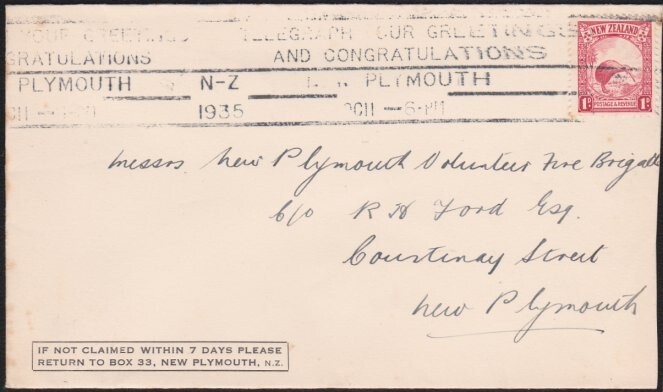 YOUR GREETINGS TELEGRAPH YOUR GREETINGS
GRATULATIONS AND CONGRATULATIONS
PLYMOUTH N-Z N. PLYMOUTH
1935 OC11
NEW ZEALAND
POSTAGE & REVENUE
1D 1D
Messrs New Plymouth Volunteer Fire Brigade
c/o R H Ford Esq.
Courtenay Street
New Plymouth
IF NOT CLAIMED WITHIN 7 DAYS PLEASE
RETURN TO BOX 33, NEW PLYMOUTH, N.Z.